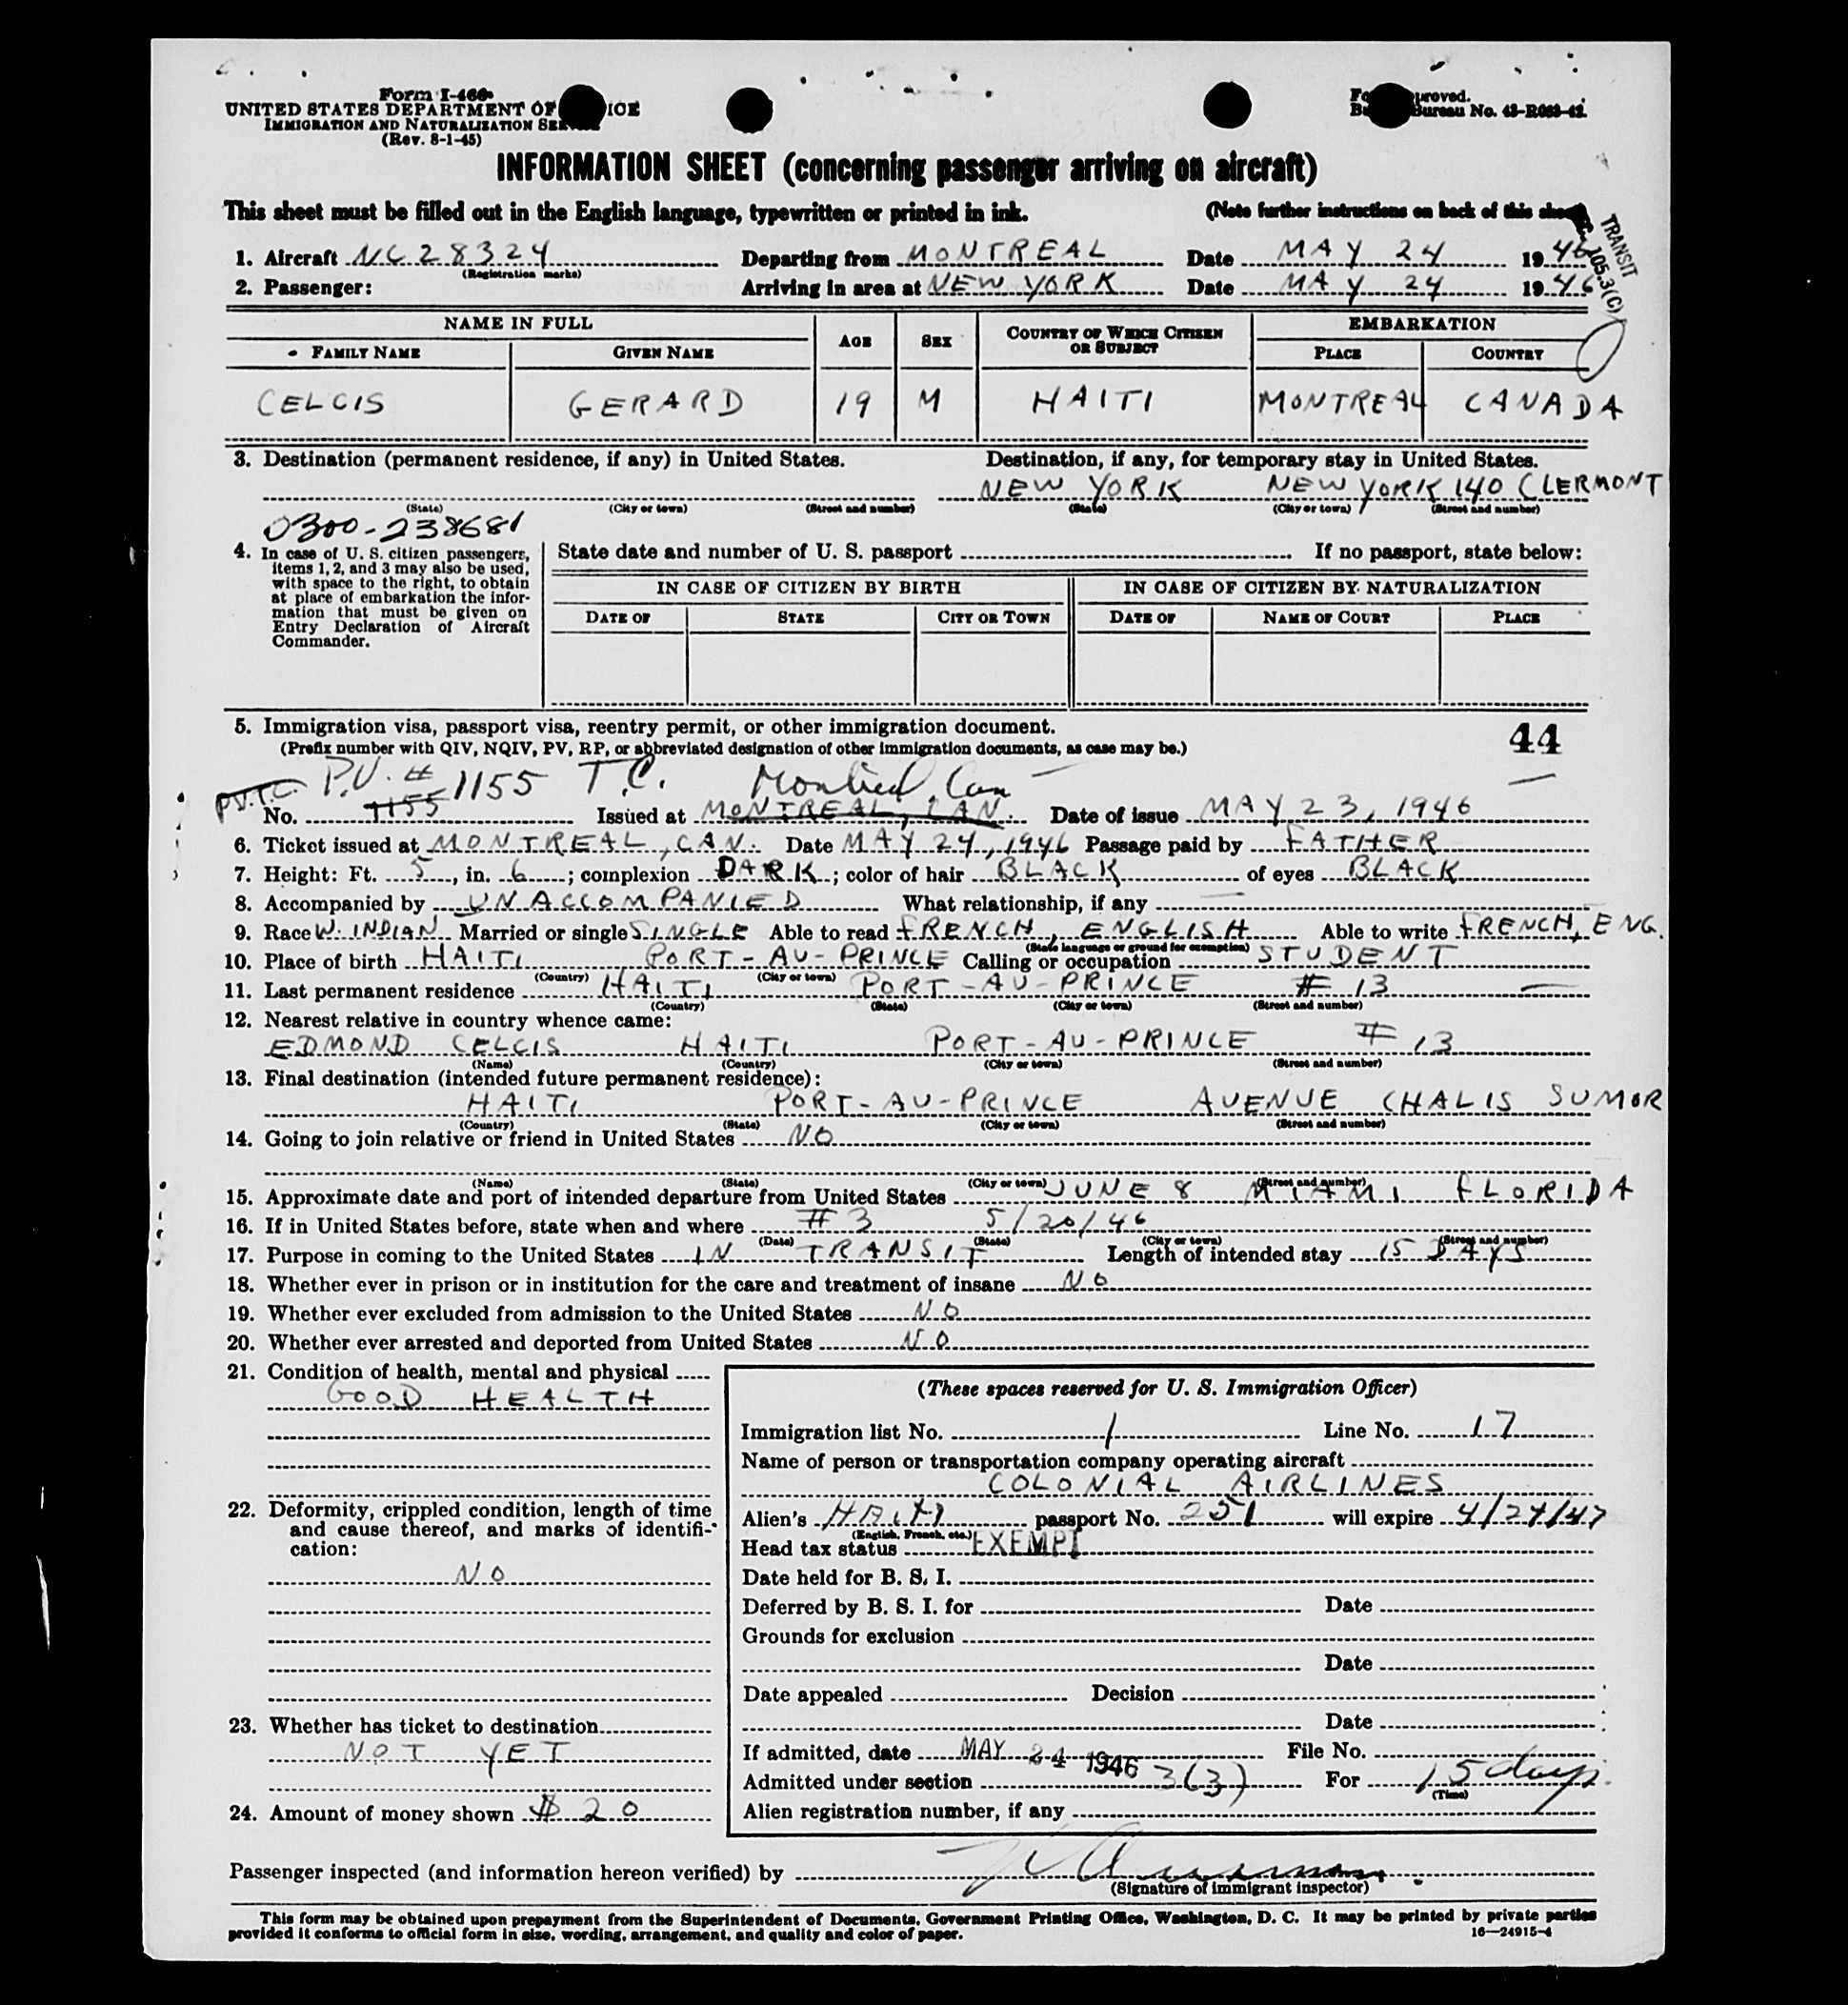 Form I-466
UNITED STATES DEPARTMENT OF ICE
IMMIGRATION AND NATURALIZATION SERVICE
(Rev. 8-1-45)
proved.
Bureau No. 43-R063-42.
INFORMATION SHEET (concerning passenger arriving on aircraft)
This sheet must be filled out in the English language, typewritten or printed in ink. (Note further instructions on back of this sheet)
TRANSIT
105.3(C)
1. Aircraft NC28324 Departing from MONTREAL Date MAY 24 1946
(Registration marks)
2. Passenger: Arriving in area at NEW YORK Date MAY 24 1946
NAME IN FULL AGE SEX COUNTRY OF WHICH CITIZEN OR SUBJECT EMBARKATION
FAMILY NAME GIVEN NAME PLACE COUNTRY
CELCIS GERARD 19 M HAITI MONTREAL CANADA
3. Destination (permanent residence, if any) in United States. Destination, if any, for temporary stay in United States.
NEW YORK NEW YORK 140 CLERMONT
(State) (City or town) (Street and number) (State) (City or town) (Street and number)
0300-238681
4. In case of U. S. citizen passengers, items 1, 2, and 3 may also be used, with space to the right, to obtain at place of embarkation the information that must be given on Entry Declaration of Aircraft Commander.
State date and number of U. S. passport If no passport, state below:
IN CASE OF CITIZEN BY BIRTH IN CASE OF CITIZEN BY NATURALIZATION
DATE OF STATE CITY OR TOWN DATE OF NAME OF COURT PLACE
5. Immigration visa, passport visa, reentry permit, or other immigration document. 44
(Prefix number with QIV, NQIV, PV, RP, or abbreviated designation of other immigration documents, as case may be.)
P.V. # 1155 T.C. Montreal, Can
P.V.T.C.
No. 1155 Issued at MONTREAL, CAN. Date of issue MAY 23, 1946
6. Ticket issued at MONTREAL, CAN. Date MAY 24, 1946 Passage paid by FATHER
7. Height: Ft. 5, in. 6; complexion DARK; color of hair BLACK of eyes BLACK
8. Accompanied by UNACCOMPANIED What relationship, if any
9. Race W. INDIAN Married or single SINGLE Able to read FRENCH, ENGLISH Able to write FRENCH, ENG.
(State language or ground for exemption)
10. Place of birth HAITI PORT-AU-PRINCE Calling or occupation STUDENT
(Country) (City or town)
11. Last permanent residence HAITI PORT-AU-PRINCE # 13
(Country) (State) (City or town) (Street and number)
12. Nearest relative in country whence came:
EDMOND CELCIS HAITI PORT-AU-PRINCE # 13
(Name) (Country) (City or town) (Street and number)
13. Final destination (intended future permanent residence):
HAITI PORT-AU-PRINCE AVENUE CHALIS SUMOR
(Country) (State) (City or town) (Street and number)
14. Going to join relative or friend in United States NO
(Name) (State) (City or town) (Street and number)
15. Approximate date and port of intended departure from United States JUNE 8 MIAMI FLORIDA
16. If in United States before, state when and where #3 5/20/46
(Date) (State) (City or town) (Street and number)
17. Purpose in coming to the United States IN TRANSIT Length of intended stay 15 DAYS
18. Whether ever in prison or in institution for the care and treatment of insane NO
19. Whether ever excluded from admission to the United States NO
20. Whether ever arrested and deported from United States NO
21. Condition of health, mental and physical
GOOD HEALTH
22. Deformity, crippled condition, length of time and cause thereof, and marks of identification:
NO
23. Whether has ticket to destination
NOT YET
24. Amount of money shown $ 20
(These spaces reserved for U. S. Immigration Officer)
Immigration list No. 1 Line No. 17
Name of person or transportation company operating aircraft
COLONIAL AIRLINES
Alien's HAITI passport No. 251 will expire 4/24/47
(English, French, etc.)
Head tax status EXEMPT
Date held for B. S. I.
Deferred by B. S. I. for Date
Grounds for exclusion
Date
Date appealed Decision
Date
If admitted, date MAY 24 1946 File No.
Admitted under section 3(3) For 15 days
(Time)
Alien registration number, if any
Passenger inspected (and information hereon verified) by
(Signature of immigrant inspector)
This form may be obtained upon prepayment from the Superintendent of Documents, Government Printing Office, Washington, D. C. It may be printed by private parties
provided it conforms to official form in size, wording, arrangement, and quality and color of paper. 16—24915-4